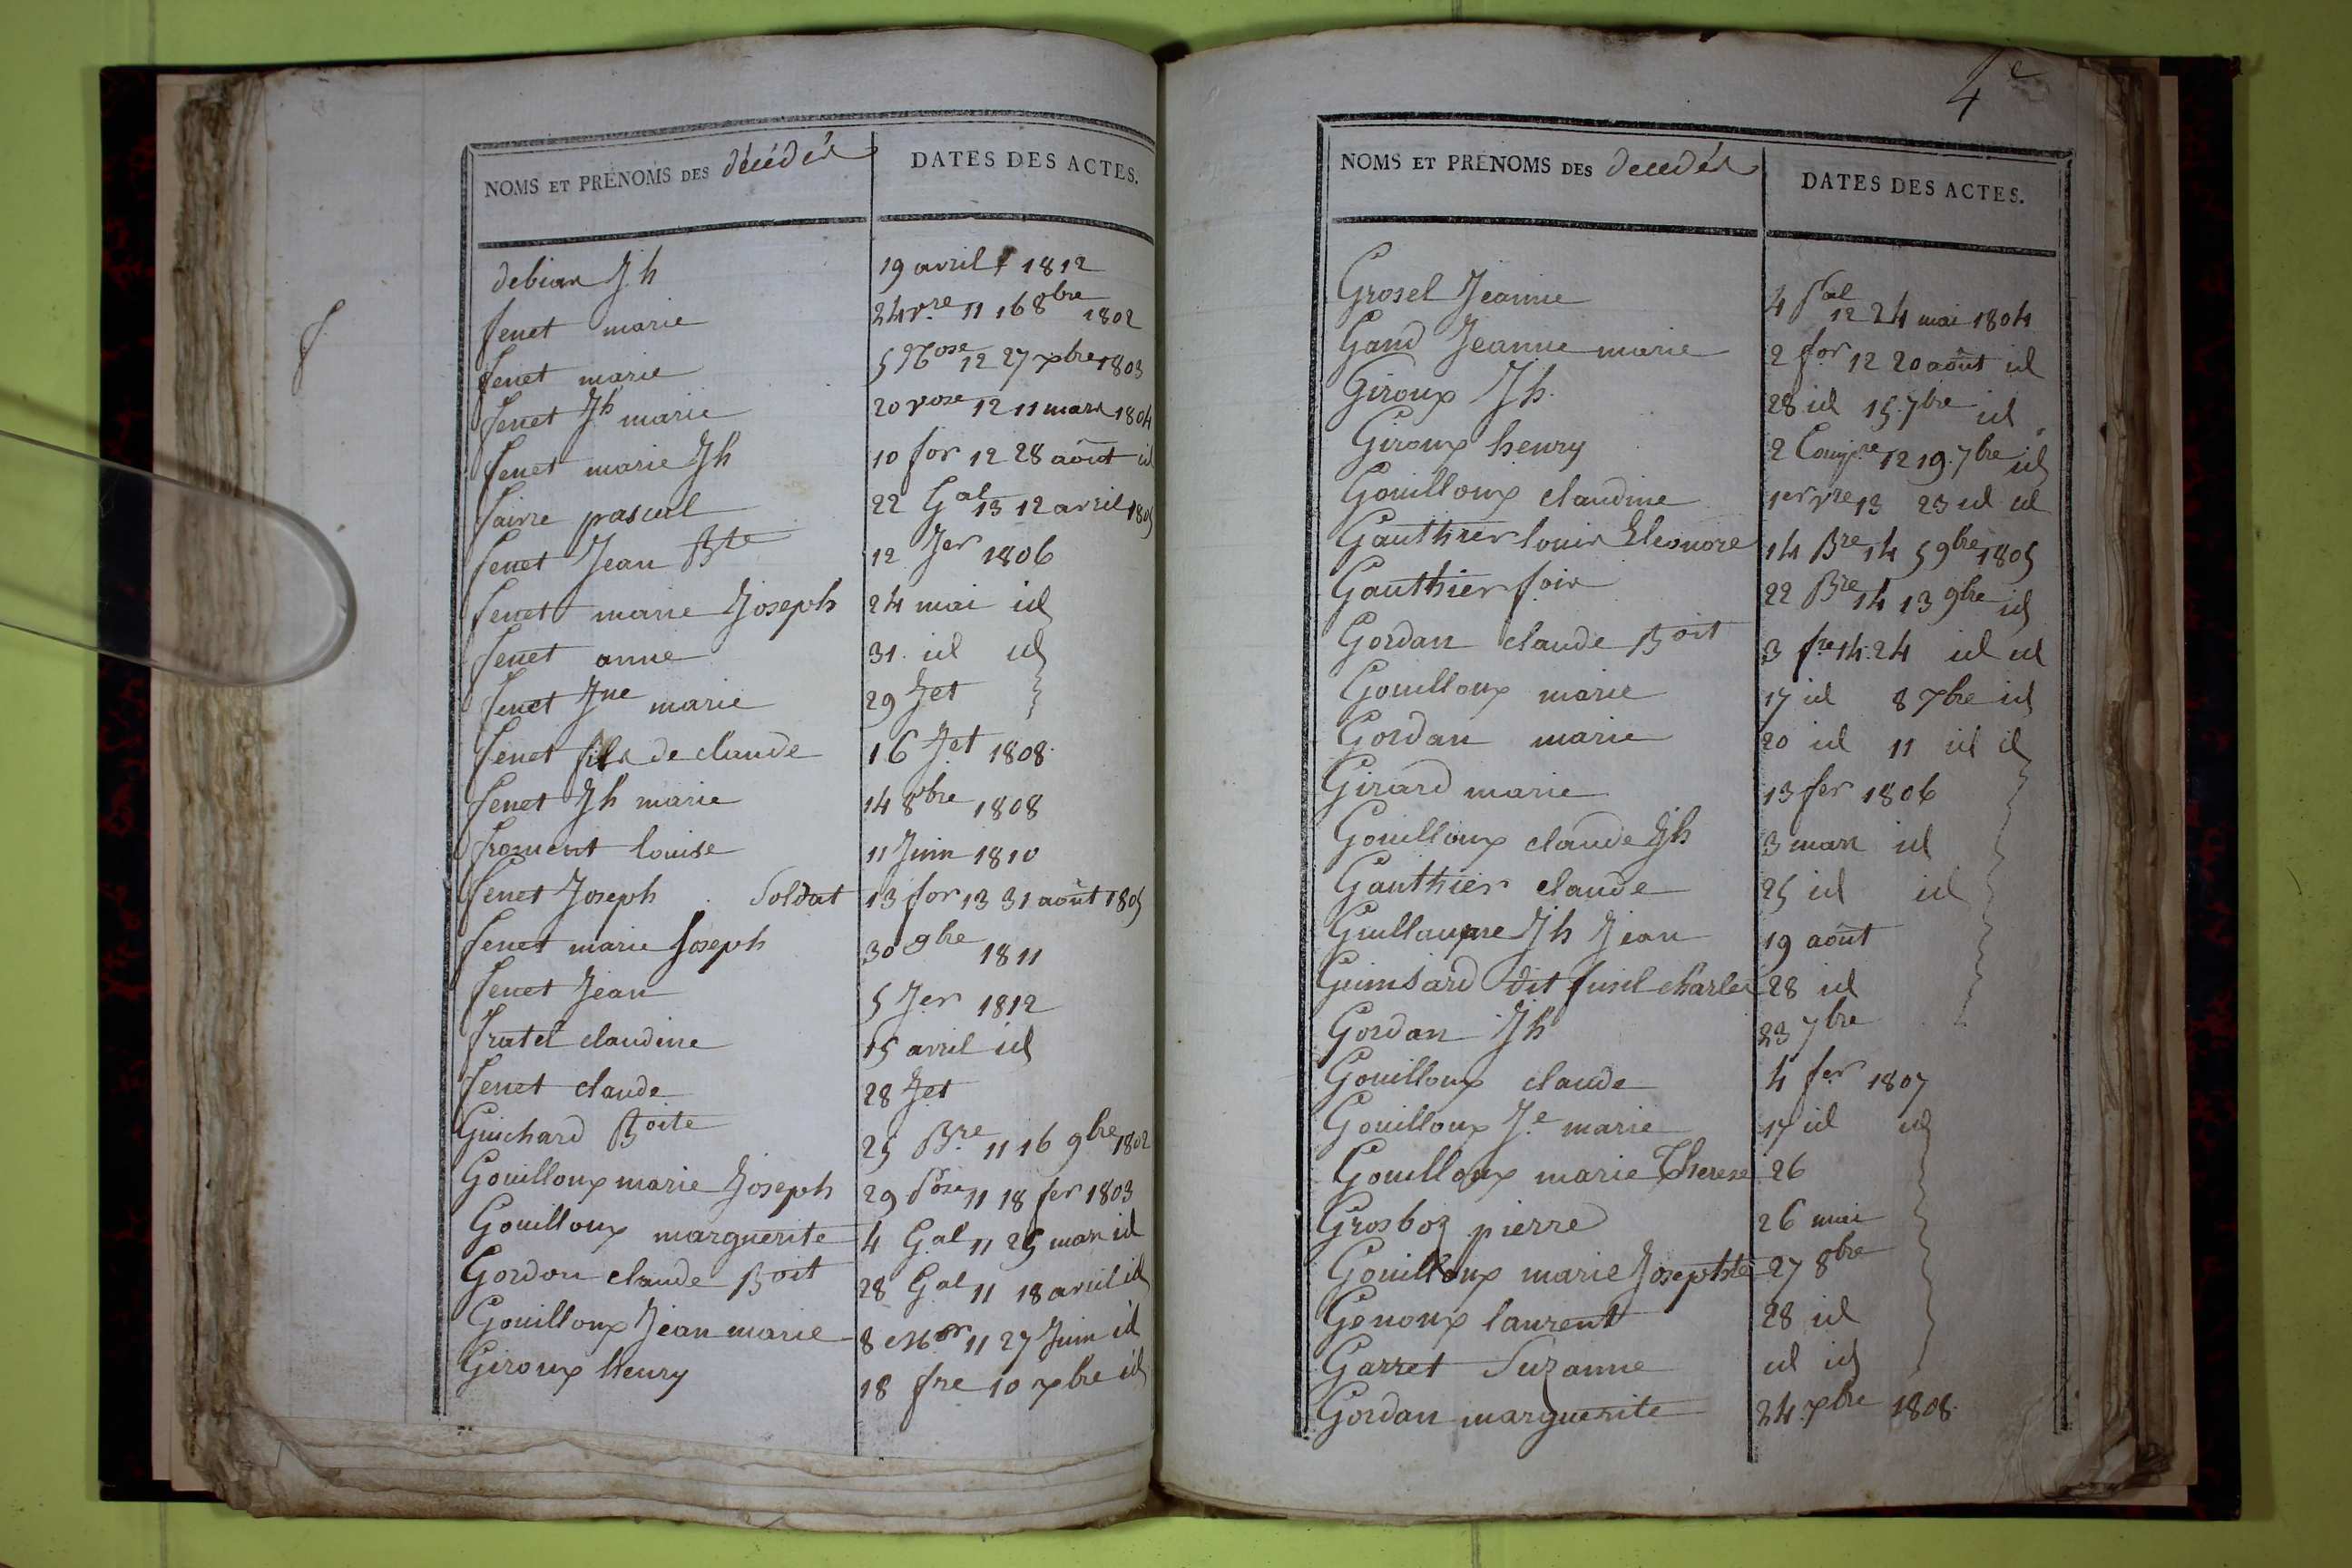 NOMS ET PRÉNOMS DES décédés DATES DES ACTES.
debian Jh 19 avril 1812
f
fenet marie 24 vre 11 16 8bre 1802
fenet marie 5 Nose 12 27 xbre 1803
fenet Jh marie 20 vose 12 11 mars 1804
fenet marie Jh 10 for 12 28 août id
faivre pascal 22 Gal 13 12 avril 1805
fenet Jean Bte 12 Jer 1806
fenet marie Joseph 24 mai id
fenet anne 31 id id
fenet Jne marie 29 Jet
fenet fils de claude 16 Jet 1808
fenet Jh marie 14 8bre 1808
froment louise 11 Juin 1810
fenet Joseph Soldat 13 for 13 31 août 1805
fenet marie Joseph 30 9bre 1811
fenet Jean 5 Jer 1812
fratel claudine 15 avril id
fenet claude 28 Jet
Guichard Boite 25 Bre 11 16 9bre 1802
Gouilloux marie Joseph 29 Pose 11 18 fer 1803
Gouilloux marguerite 4 Gal 11 25 mars id
Gordon claude Boit 28 Gal 11 18 avril id
Gouilloux Jean marie 8 Mor 11 27 Juin id
Giroux henry 18 fre 10 xbre id
4e
NOMS ET PRÉNOMS DES décédés DATES DES ACTES.
Grosel Jeanne 4 Pal 12 24 mai 1804
Gand Jeanne marie 2 for 12 20 août id
Giroux Jh. 28 id 15 7bre id
Giroux henry 2 Compre 12 19 7bre id
Gouilloux claudine 1er vre 13 23 id id
Gauthier louis Eleonore 14 Bre 14 5 9bre 1805
Gauthier fois 22 Bre 14 13 9bre id
Gordan claude Boit 3 fre 14 24 id id
Gouilloux marie 17 id 8 xbre id
Gordan marie 20 id 11 id id
Girard marie 13 fer 1806
Gouilloux claude Jh 3 mars id
Gauthier claude 25 id id
Guillaume Jh Jean 19 août
Guinsard dit fusil charles 28 id
Gordan Jh 23 7bre
Gouilloux claude 4 fer 1807
Gouilloux Je marie 17 id id
Gouilloux marie Therese 26
Grosboz pierre 26 mai
Gouilloux marie Josephte 27 8bre
Genoux laurent 28 id
Garret Suzanne id id
Gordan marguerite 24 xbre 1808